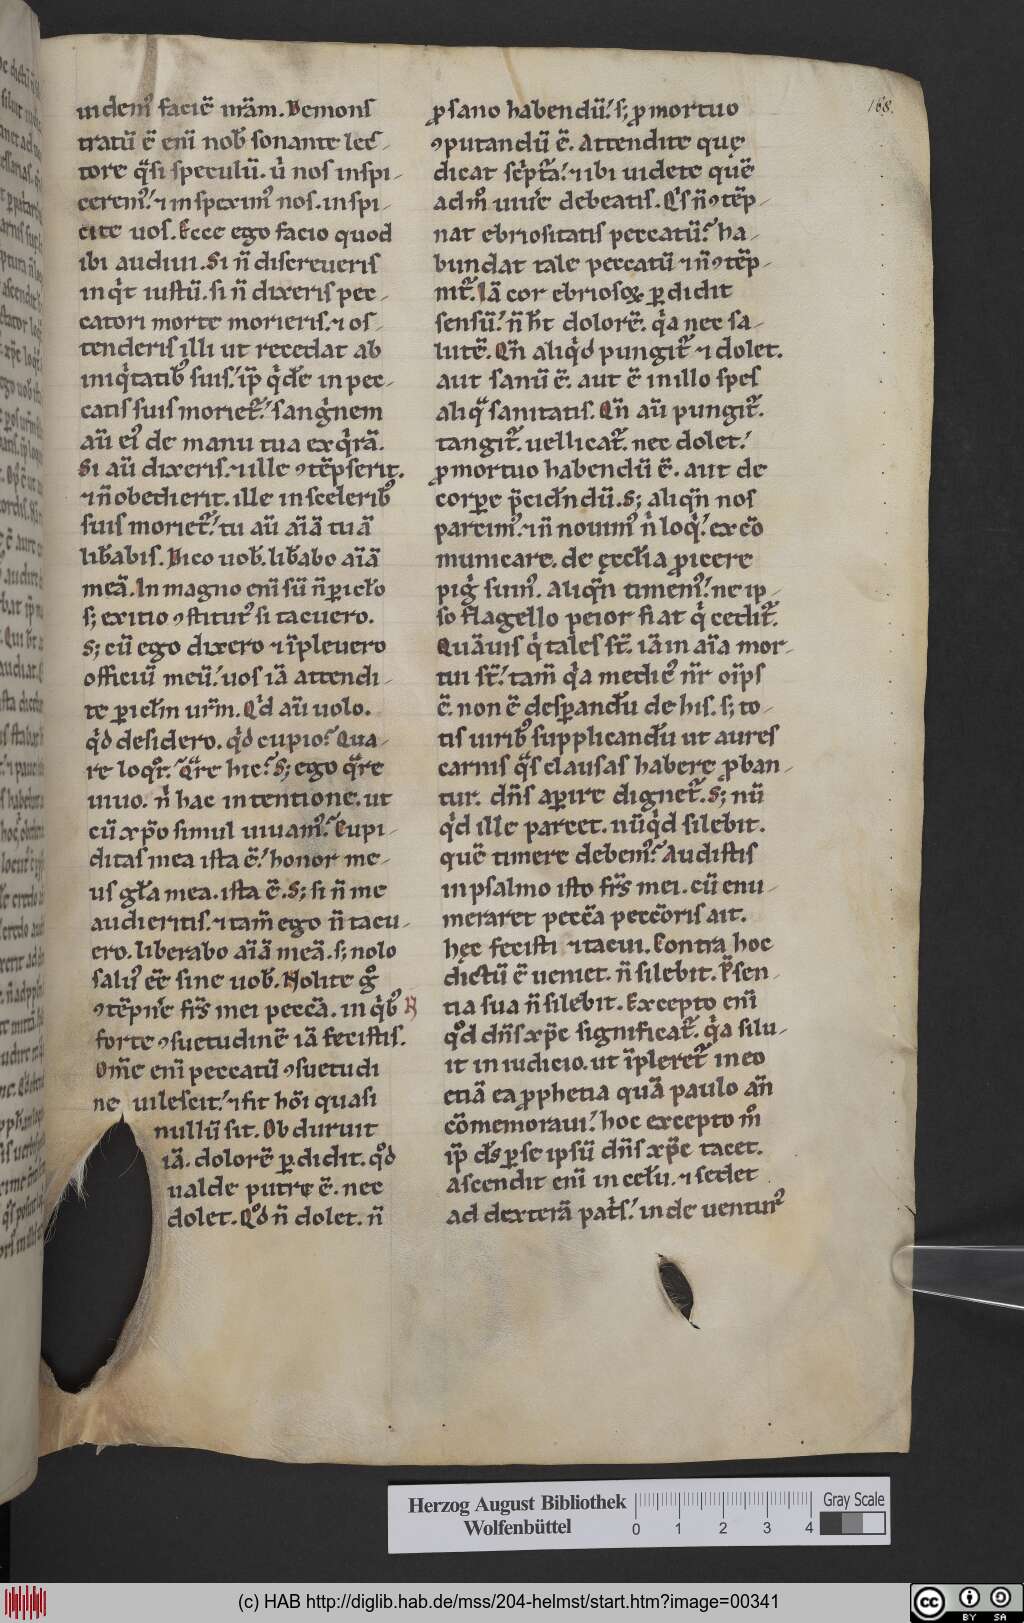 168.
uidem᷒ faciē nr̄am. Demonſ
tratū ē eni̅ nob̅ ſonante lec-
tore q̄ſi ſpeculū. u̇ noſ inſpi-
cerem᷒. ⁊ inſpexim᷒ noſ. inſpi-
cite uoſ. Ecce ego facio quod
ibi audiui. Si n̅ diſcreueriſ
inq̇t iuſtū. ſi n̅ dixeriſ pec-
catori morte morieriſ. ⁊ oſ-
tenderiſ illi ut recedat ab
iniq̇tatib᷒ ſuiſ. ip̅ q̇dē in pec-
catiſ ſuiſ moriet᷑. ſanġnem
au̅ ei᷒ de manu tua exq̇rā.
Si au̅ dixeriſ. ⁊ ille ꝯtēpſerit.
⁊ n̅ obedierit. ille in ſcelerib᷒
ſuiſ moriet᷑. tu au̅ aı̅ā tuā
lib̅abiſ. Dico uob̅. lib̅abo aı̅ā
meā. In magno eni̅ ſū n̅ ꝑicl̅o
ſ; exitio ꝯſtitut᷒ ſi tacuero.
S; cū ego dixero ⁊ i̅pleuero
officiū meū. uoſ iā attendi-
te ꝑicl̅m ur̅m. Qͥd au̅ uolo.
qͥd deſidero. qͥd cupio? Qua-
re loqͦr. Qͣre hic? S; ego qͣre
uiuo. n̍ hac intentione. ut
cū xp̅o ſimul uiuam᷒? Cupi-
ditaſ mea iſta ē. honor me-
uſ gl̅a mea. iſta ē. S; ſi n̅ me
audieritiſ. ⁊ tam̅ ego n̅ tacu-
ero. liberabo aı̅ā meā. ſ; nolo
ſalu᷒ eē ſine uob̅. Nolite gͦ
ꝯtēpn̍e fr̅ſ mei pecc̅a. in qͥb᷒
forte ꝯſuetudinē iā feciſtiſ.
Om̅e eni̅ peccatū ꝯſuetudi
ne uileſcit. ⁊ fit ho̅i quaſi
nullū ſit. Obduruit
iā. dolorē ꝑdidit. qͦd
ualde putre ē. nec
dolet. Qͦd n̅ dolet. n̅
ꝓ ſano habendū. ſ; ꝓ mortuo
ꝯputandū ē. Attendite quę
dicat ſc̍pt̅a. ⁊ ibi uidete quē
admͦ uiu̍e debeatiſ. Qͥſ n̅ ꝯtēp-
nat ebrioſitatiſ peccatū? ha-
bundat tale peccatū ⁊ n̅ ꝯtēp-
nit᷑. Iā cor ebrioſoꝝ ꝑdidit
ſenſū. n̅ h̅t dolorē. qͥa nec ſa-
lutē. Qn̅ aliqͥd pungit᷑ ⁊ dolet.
aut ſanū ē. aut ē in illo ſpeſ
aliqͣ ſanitatiſ. Qn̅ au̅ pungit᷑.
tangit᷑. uellicat᷑. nec dolet.
ꝓ mortuo habendū ē. aut de
corꝑe p̅cid̅ndū. S; aliqn̅ noſ
parcim᷒. ⁊ n̅ nouim᷒ n̍ loqͥ. exco̅
municare. de ęccl̅ia ꝓicere
pigͥ ſum᷒. Aliqn̅ timem᷒. ne ip-
ſo flagello peior fiat qͥ cedit᷑.
Quāuiſ qͥ taleſ ſt̅. iā in aı̅a mor-
tui ſt̅. tam̅ qͥa medic᷒ n̅r o̅ipſ
ē. non ē deſꝑand̅u de hiſ. ſ; to-
tiſ uirib᷒ ſupplicand̅u ut aureſ
carniſ qͣſ clauſaſ habere ꝓban-
tur. dn̅ſ aꝑire dignet᷑. S; nū
qͥd ille parcet. nūqͥd ſilebit.
quē timere debem᷒? Audiſtiſ
in pſalmo iſto fr̅ſ mei. cū enu-
meraret pecc̅a pecc̅oriſ ait.
hęc feciſti ⁊ tacui. Contra hoc
dictū ē ueniet. n̅ ſilebit. P̅ſen-
tia ſua n̅ ſilebit. Excepto eni̅
qͦd dn̅ſ xp̅c ſignificat᷑. qͥa ſilu-
it in iudicio. ut i̅pleret᷑ in eo
etiā ea ꝓphetia quā paulo an̅
co̅memoraui. hoc excepto mͦ
ip̅ d̅ſ ꝑ ſe ipſū dn̅ſ xp̅c tacet.
aſcendit eni̅ in cel̅u. ⁊ ſedet
ad dexterā pat̍ſ. inde uentur᷒
Herzog August Bibliothek
Wolfenbüttel
0 1 2 3 4
Gray Scale
(c) HAB http://diglib.hab.de/mss/204-helmst/start.htm?image=00341
cc BY SA